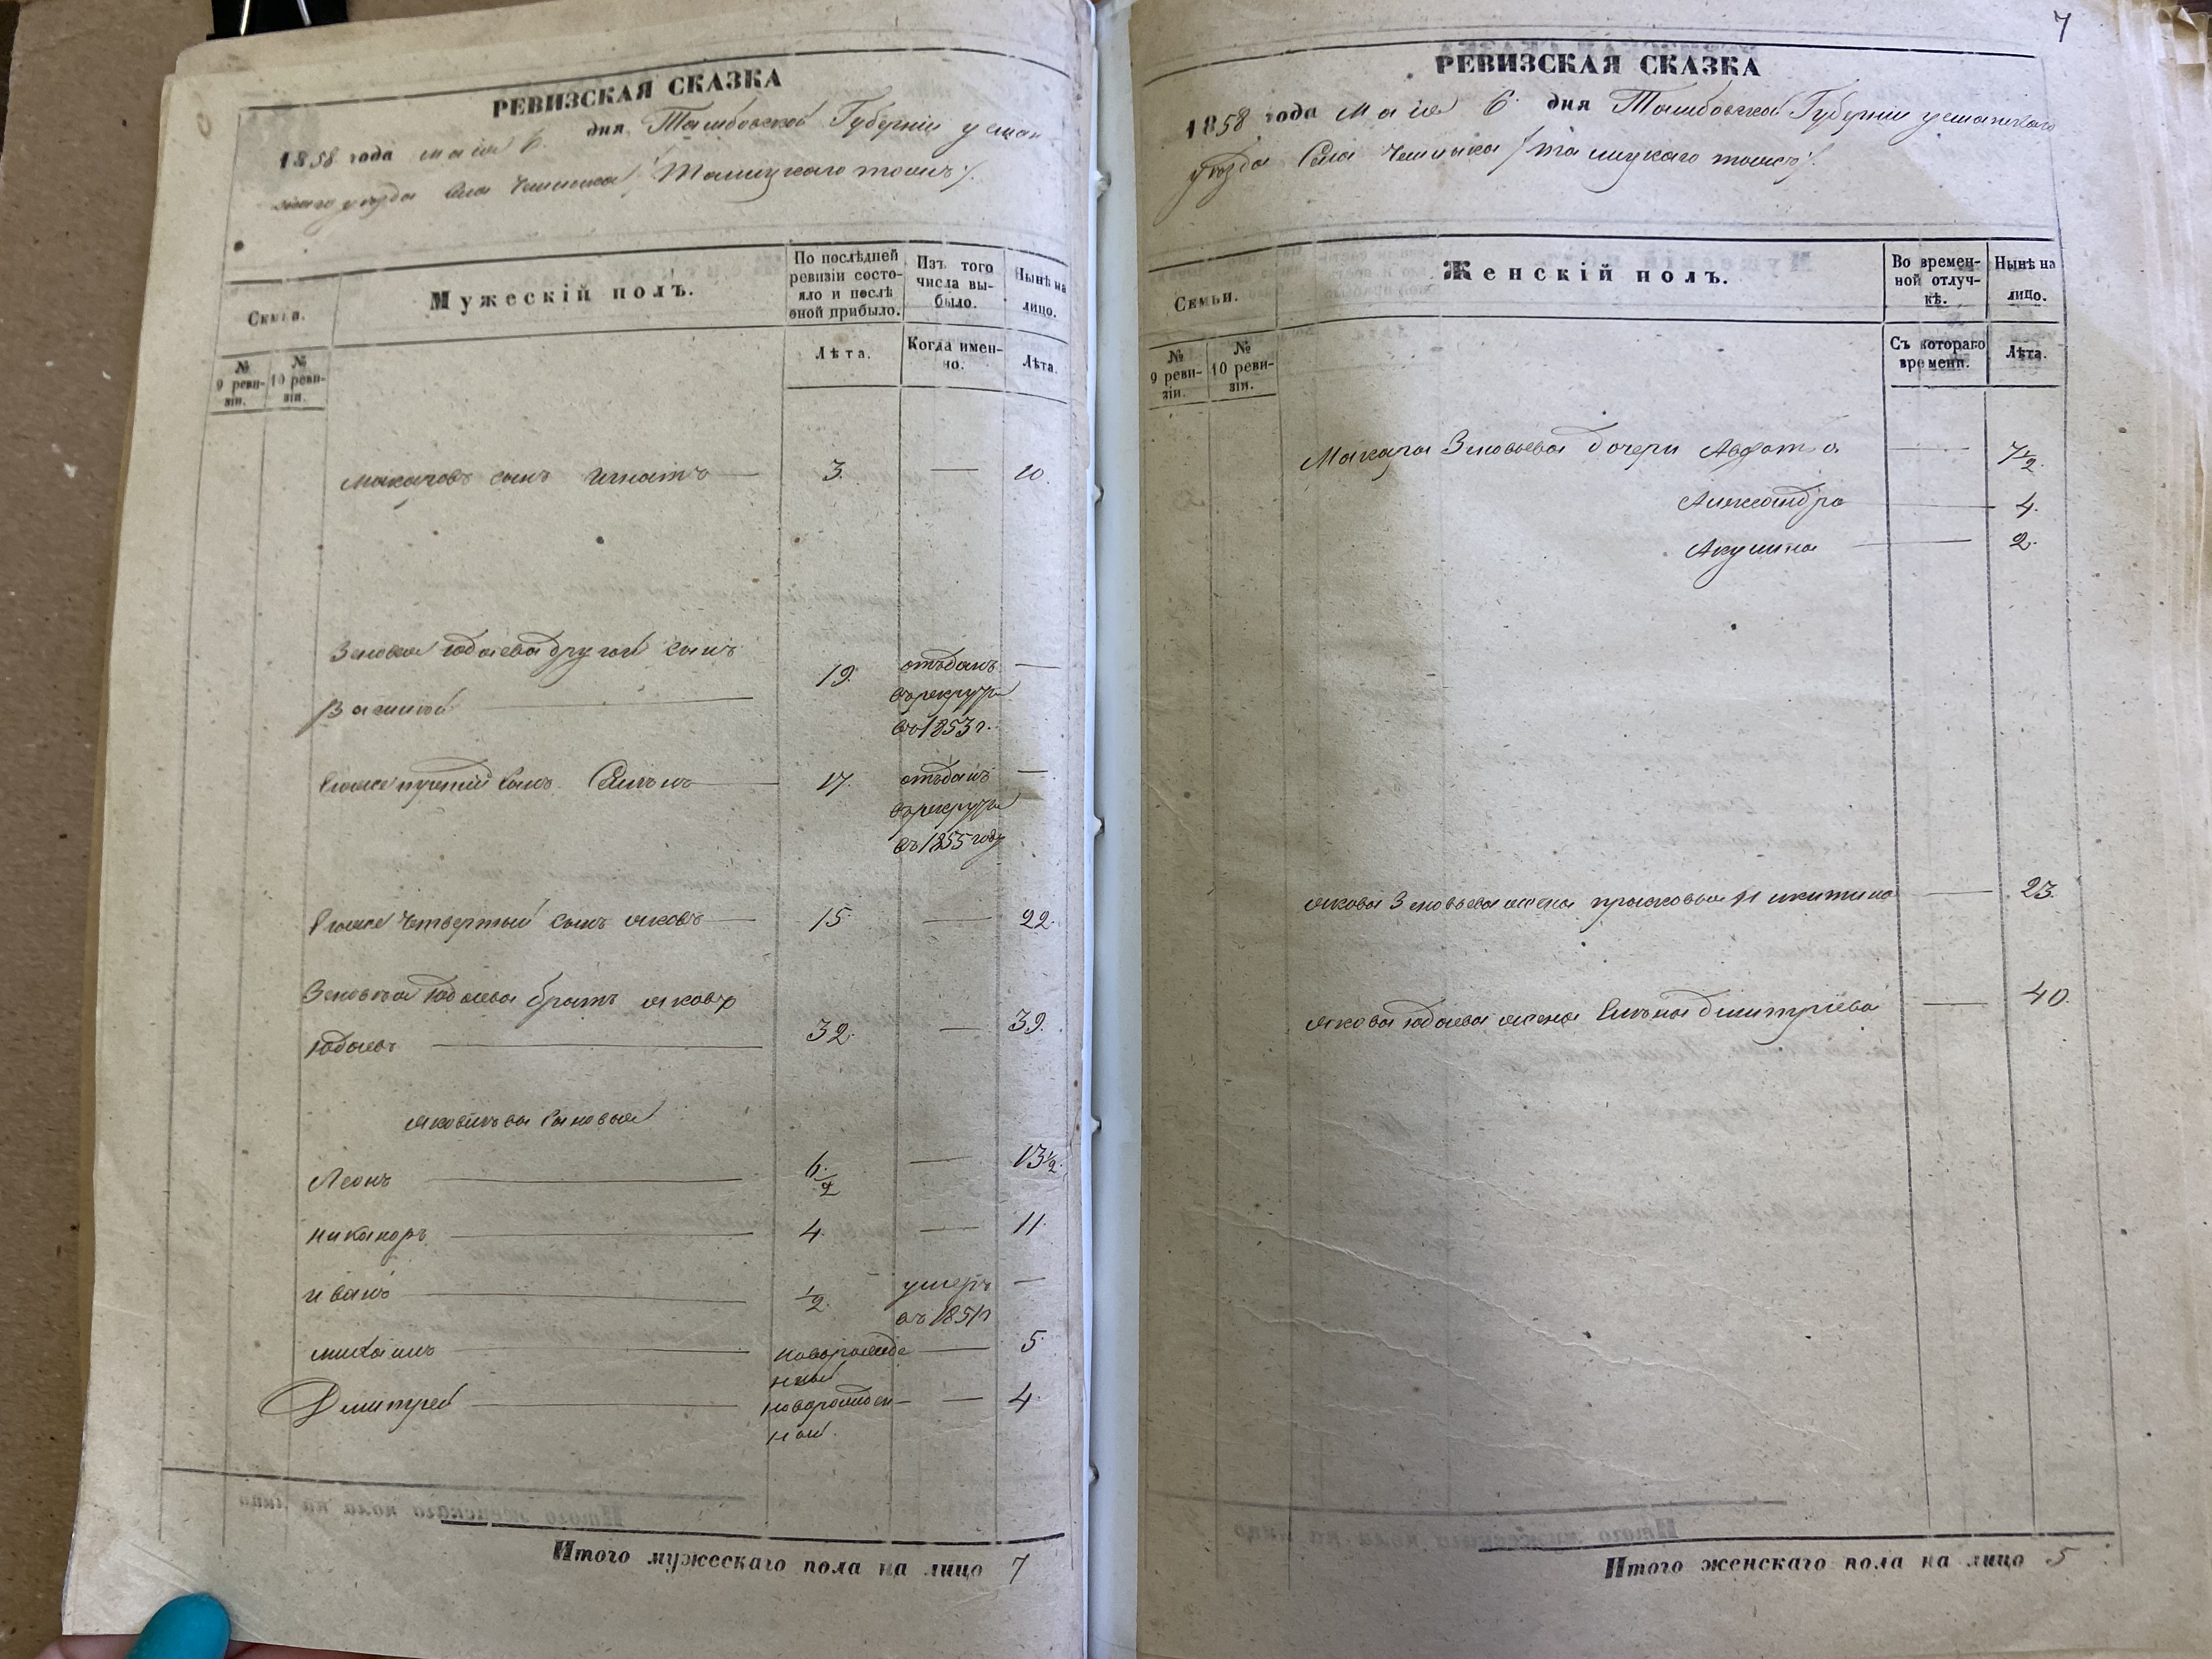 РЕВИЗСКАЯ СКАЗКА
1858 года маія 6. дня Тамбовской Губерніи усман
скаго уѣзда Села Чемлыка /Талицкаго тожъ/.
Семьи.
Мужескій полъ.
По послѣдней ревизіи состояло и послѣ оной прибыло.
Изъ того числа выбыло.
Нынѣ на лицо.
№ 9 ревизіи.
№ 10 ревизіи.
Лѣта.
Когда именно.
Лѣта.
Макаровъ сынъ Игнатъ 3. — 10.
Зеновья Юдаева другой сынъ
Василій 19. отъданъ —
въ рекруты
въ 1853 г.
Егоже третій сынъ Семенъ 17. отъданъ —
въ рекруты
въ 1855 году
Егоже четвертый сынъ яковъ 15. — 22.
Зеновья Юдаева братъ яковъ
Юдаевъ 32. — 39.
яковлевы сыновья
Леонъ 6 1/2 — 13 1/2.
никаноръ 4 — 11.
иванъ 1/2. умеръ —
въ 1851 г
михаилъ новорожде — 5.
нный
Дмитрей новорожден- — 4.
ной.
Итого мужескаго пола на лицо 7
7
РЕВИЗСКАЯ СКАЗКА
1858 года маія 6. дня Тамбовской Губерніи усманскаго
уѣзда Села Чемлыка /талицкаго тожъ/.
Семьи.
Женскій полъ.
Во временной отлучкѣ.
Нынѣ на лицо.
№ 9 ревизіи.
№ 10 ревизіи.
Съ котораго времени.
Лѣта.
Макара Зеновьева дочери Авдотья — 7 1/2.
Александра — 4.
Акулина — 2.
якова Зеновьева жена прасковья Никитина — 23.
якова Юдаева жена Елена дмитріева — 40.
Итого женскаго пола на лицо 5